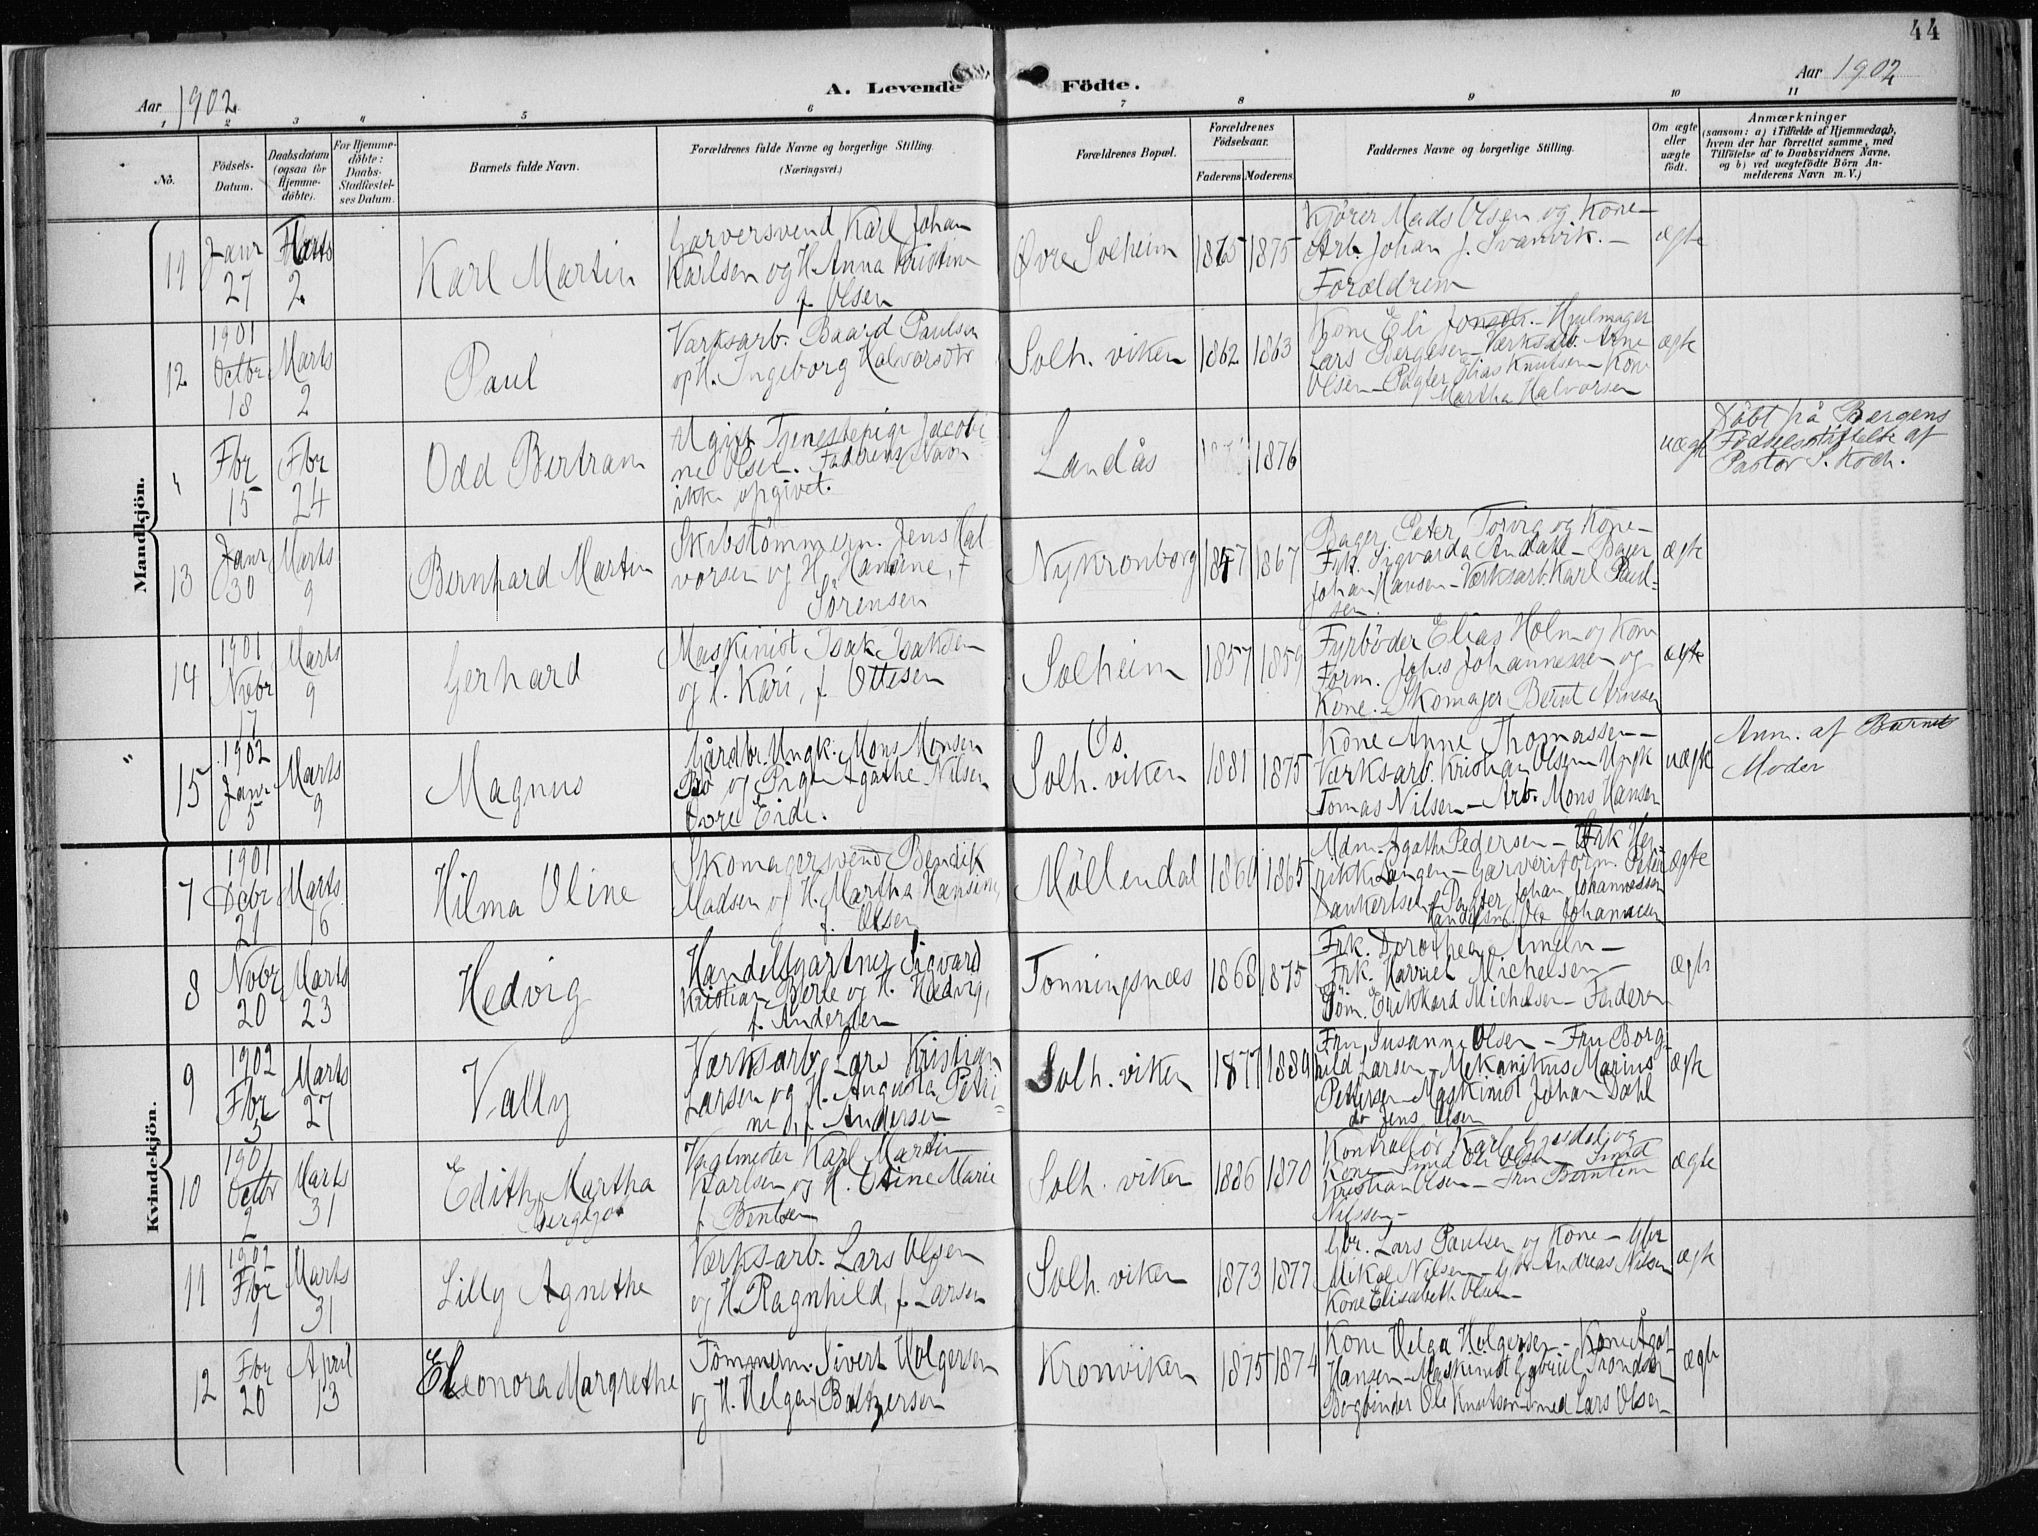 44
Aar 1902
A. Levende Födte.
Aar 1902
1 2 3 4 5 6 7 8 9 10 11
No.
Födsels-
Datum.
Daabsdatum
(ogsaa for
Hjemme-
döbte).
For Hjemme-
döbte:
Daabs-
Stadfæstel-
ses Datum.
Barnets fulde Navn.
Forældrenes fulde Navne og borgerlige Stilling.
(Næringsvei.)
Forældrenes Bopæl.
Forældrenes
Födselsaar.
Faderens. Moderens.
Faddernes Navne og borgerlige Stilling.
Om ægte
eller
uægte
födt.
Anmærkninger
(saasom: a) i Tilfælde af Hjemmedaab,
hvem der har forrettet samme, med
Tilföielse af to Daabsvidners Navne,
og b) ved uægtefödte Börn An-
melderens Navn m. V.)
Mandkjön.
11
Janr
27
Marts
2
Karl Martin
Garversvend Karl Johan
Karlsen og H. Anna Kristine
f. Olsen
Øvre Solheim
1875
1875
Kjører Mads Olsen og Kone –
Arb. Johan J. Svanvik. –
Forældrene
ægte
12
1901
Octbr
18
Marts
2
Paul
Værksarb. Baard Paulsen
og H. Ingeborg Halvorsdtr
Solh. viken
1862
1863
Kone Eli Jonsen. – Hjulmager
Lars Bergesen – Værksarb. Arne
Olsen – Pagter Elias Knutsen – Kone
Martha Halvorsen
ægte
"
Fbr
15
Fbr
24
Odd Bertram
Ugift Tjenestepige Jacobi-
ne Olsen. Faderens Navn
ikke opgivet.
Landås
1876
uægte
Døbt på Bergens
Fødselsstiftelse af
Pastor S. Koch.
13
Janr
30
Marts
9
Bernhard Martin
Skibstømmerm. Jens Hal
vorsen og H. Hansine, f
Sørensen
Nykronborg
1867
Bager Peter Torvig og Kone –
Frk. Sigvarda Andahl – Bager
Johan Hansen – Værksarb. Karl Paul-
sen.
ægte
14
1901
Nvbr
17
Marts
9
Gerhard
Maskinist Isak Isaksen
og H. Kari, f. Ottesen
Solheim
1857
1859
Fyrbøder Elias Holm og Kone
Form. Johs Johannessen og
Kone. Skomager Bernt Arnesen
ægte
"
15
1902
Janr
5
Marts
9
Magnus
Gårdbr. Ungk. Mons Monsen
Bø og Pige Agathe Nilsen
Øvre Eide.
Os.
Solh. viken
1881
1875
Kone Anne Thomassen –
Værksarb. Kristian Olsen – Ungk
Tomas Nilsen – Arb. Mons Hansen
uægte
Anm. af Barnets
Moder
Kvindekjön.
7
1901
Dcbr
21
Marts
16
Hilma Oline
Skomagersvend Bendik
Madsen og H. Martha Hansine,
f. Olsen
Møllendal
1860
1865
Mdm. Agathe Pedersen – Frk Hen-
rikke Langen – Garveriform. Peter
Dankertsen – Pagter Johan Johannessen
Handelsm Ole Johannesen
ægte
8
Nvbr
20
Marts
23
Hedvig
Handelsgartner Sigvard
Kristian Berle og H. Hedvig,
f. Andersen
Tonningsnæs
1868
1875
Frk. Dorothea Ameln –
Frk. Harriet Michelsen –
Michelsen – Faderen
ægte
9
1902
Fbr
3
Marts
27
Vally
Værksarb. Lars Kristian
Larsen og H. Augusta Petri-
ne, f. Andersen
Solh. viken
1877
Fru Susanne Olsen – Fru Borg-
hild Larsen – Mekanikus Marius
Pettersen – Maskinist Johan Dahl
do Jens Olsen
ægte
10
1901
Octbr
2
Marts
31
Edith Martha
Bergljot
Vagtmester Karl Martin
Karlsen og H. Oline Marie
f. Bentsen
Solh. viken
1870
Kontrollør Karl og
Kone – Smed Ole Olsen – Smed
Kristian Olsen – Fru Berntine
Nilssen –
ægte
11
1902
Fbr
1
Marts
31
Lilly Agnethe
Værksarb. Lars Olsen
og H. Ragnhild, f. Larsen
Solh. viken
1873
1877
Gbr. Lars Paulsen og Kone – Gbr
Mikal Nilsen – Gbr Andreas Nilsen
Kone Elisabeth Olsen –
ægte
12
Fbr
20
April
13
Eleonora Margrethe
Tømmerm. Sivert Holgersen
og H. Helga f Baltzersen
Kronviken
1875
1874
Kone Helga Holgersen – Kone Agot
Hansen – Maskinist Gabriel Trondsen
Bogbinder Ole Knutsen – Smed Lars Olsen
ægte